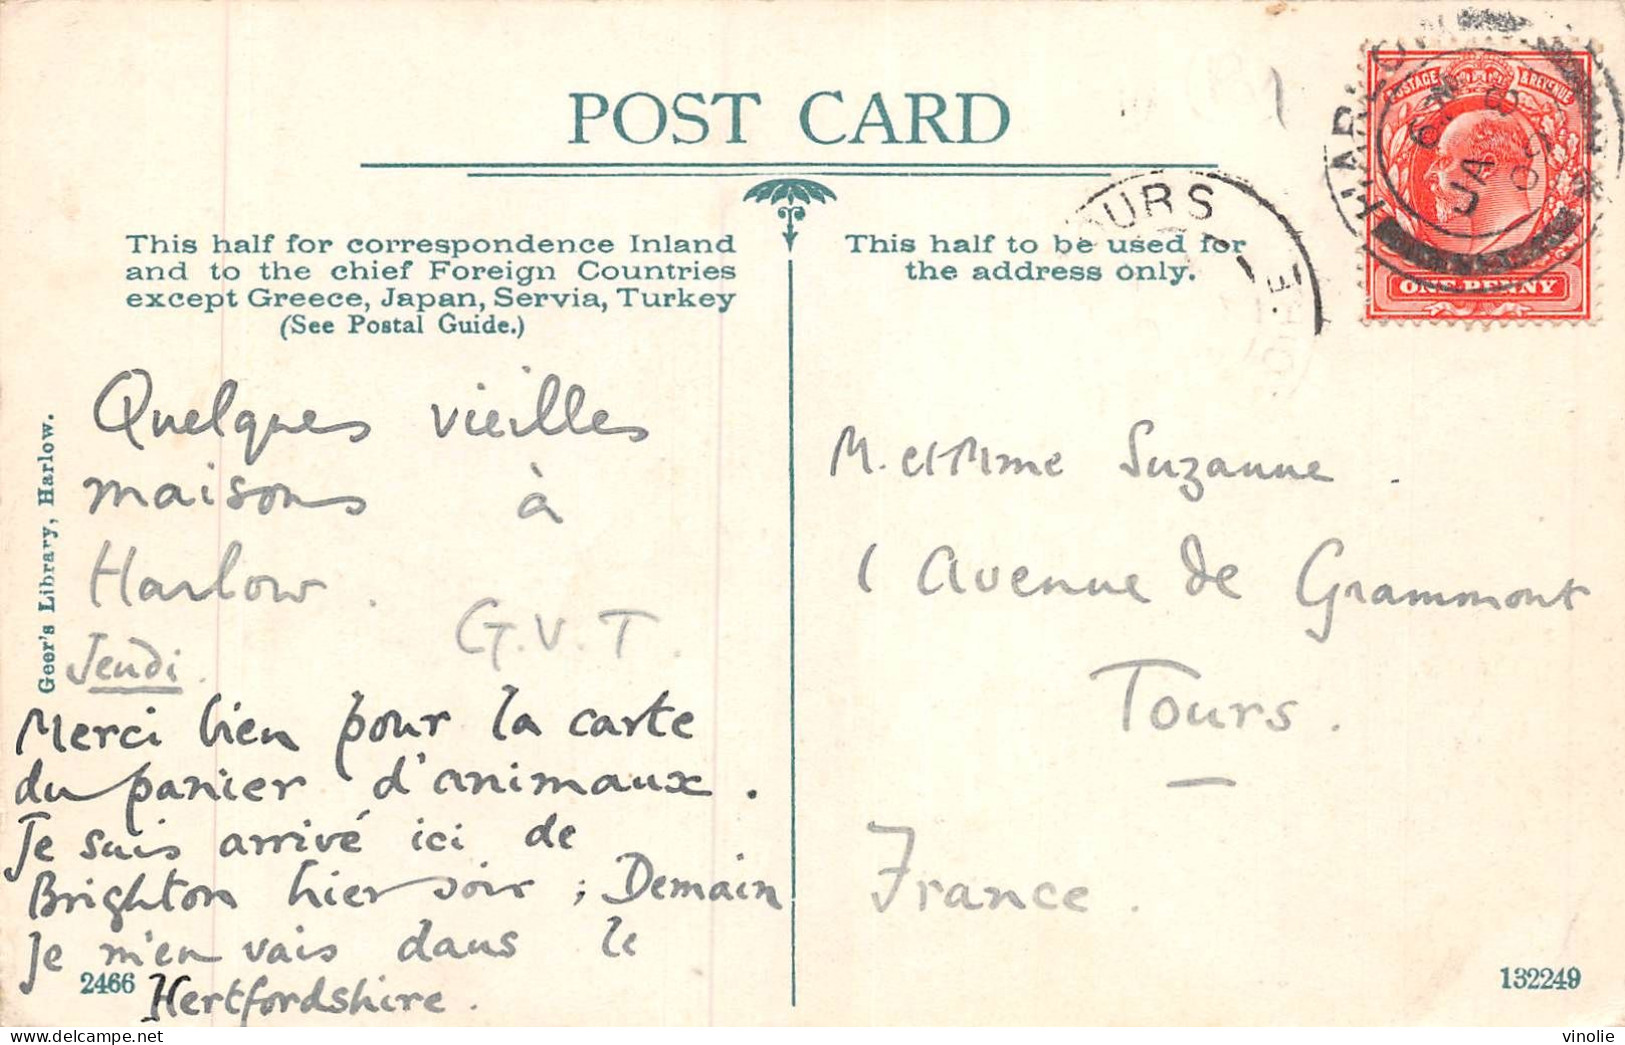 POST CARD
This half for correspondence Inland
and to the chief Foreign Countries
except Greece, Japan, Servia, Turkey
(See Postal Guide.)
This half to be used for
the address only.
TOURS
POSTAGE & REVENUE
ONE PENNY
JA 8
09
Geer's Library, Harlow.
Quelques vieilles
maisons à
Harlow.
G.V.T.
Jeudi.
Merci bien pour la carte
du panier d'animaux.
Je suis arrivé ici de
Brighton hier soir; Demain
Je m'en vais dans le
Hertfordshire.
M. et Mme Suzanne.
1 Avenue de Grammont
Tours.
France.
2466
132249
vinolie